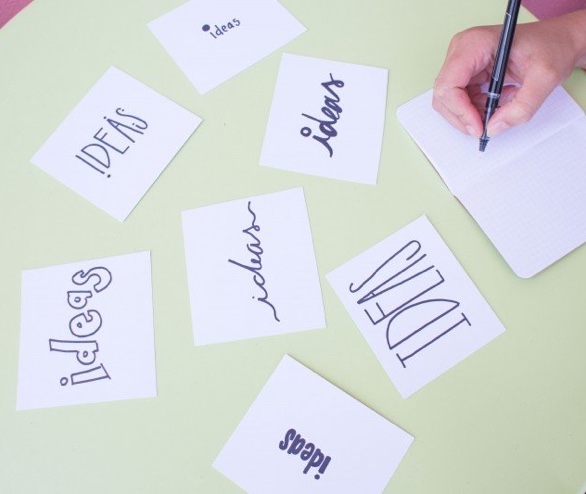 ideas
IDEAS
ideas
ideas
IDEAS
ideas
ideas